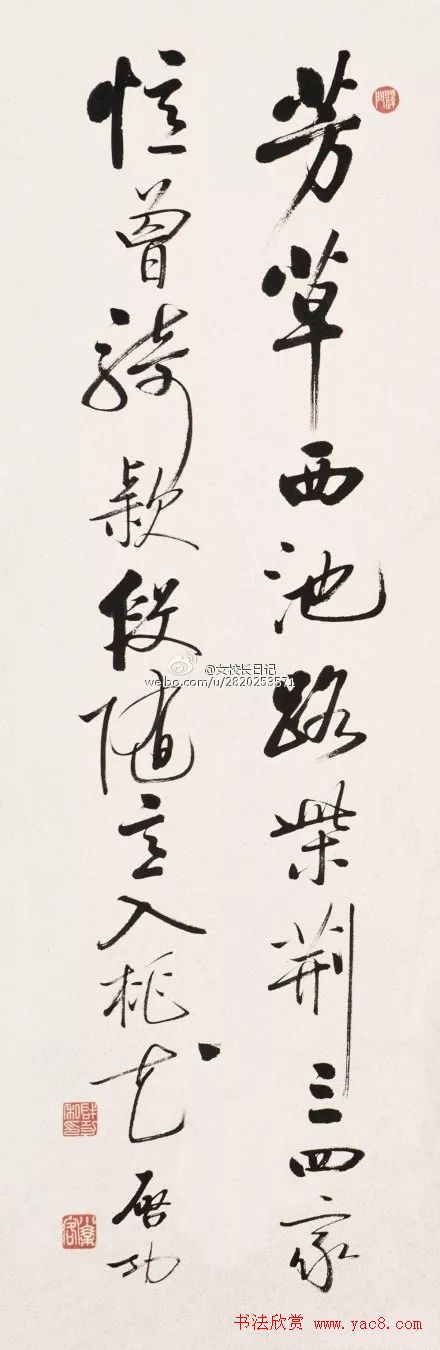 芳草西池路柴荆三四家
憶曾騎款段随意入桃花
啓功
@女校长日记
weibo.com/u/2820253571
书法欣赏 www.yac8.com